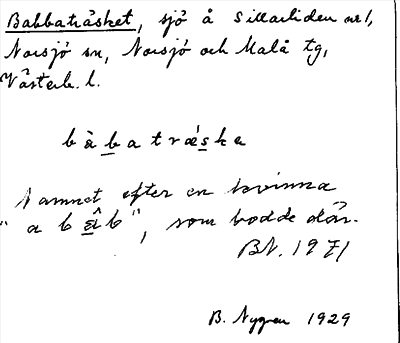 Babbaträsket, sjö å Sillaeliden nr 1,
Norsjö sn, Norsjö och Malå tg,
Västerb. l.
bàbatrǽska
Namnet efter en kvinna
"a bab", som bodde där.
BN. 1971
B. Nygren 1929